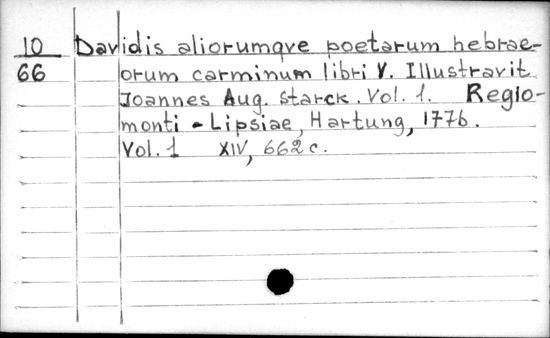 10 Davidis aliorumqve poetarum hebrae-
66 orum carminum libri V. Illustravit
Joannes Aug. Starck. Vol. 1. Regio-
monti - Lipsiae, Hartung, 1776.
Vol. 1 XIV, 662 c.